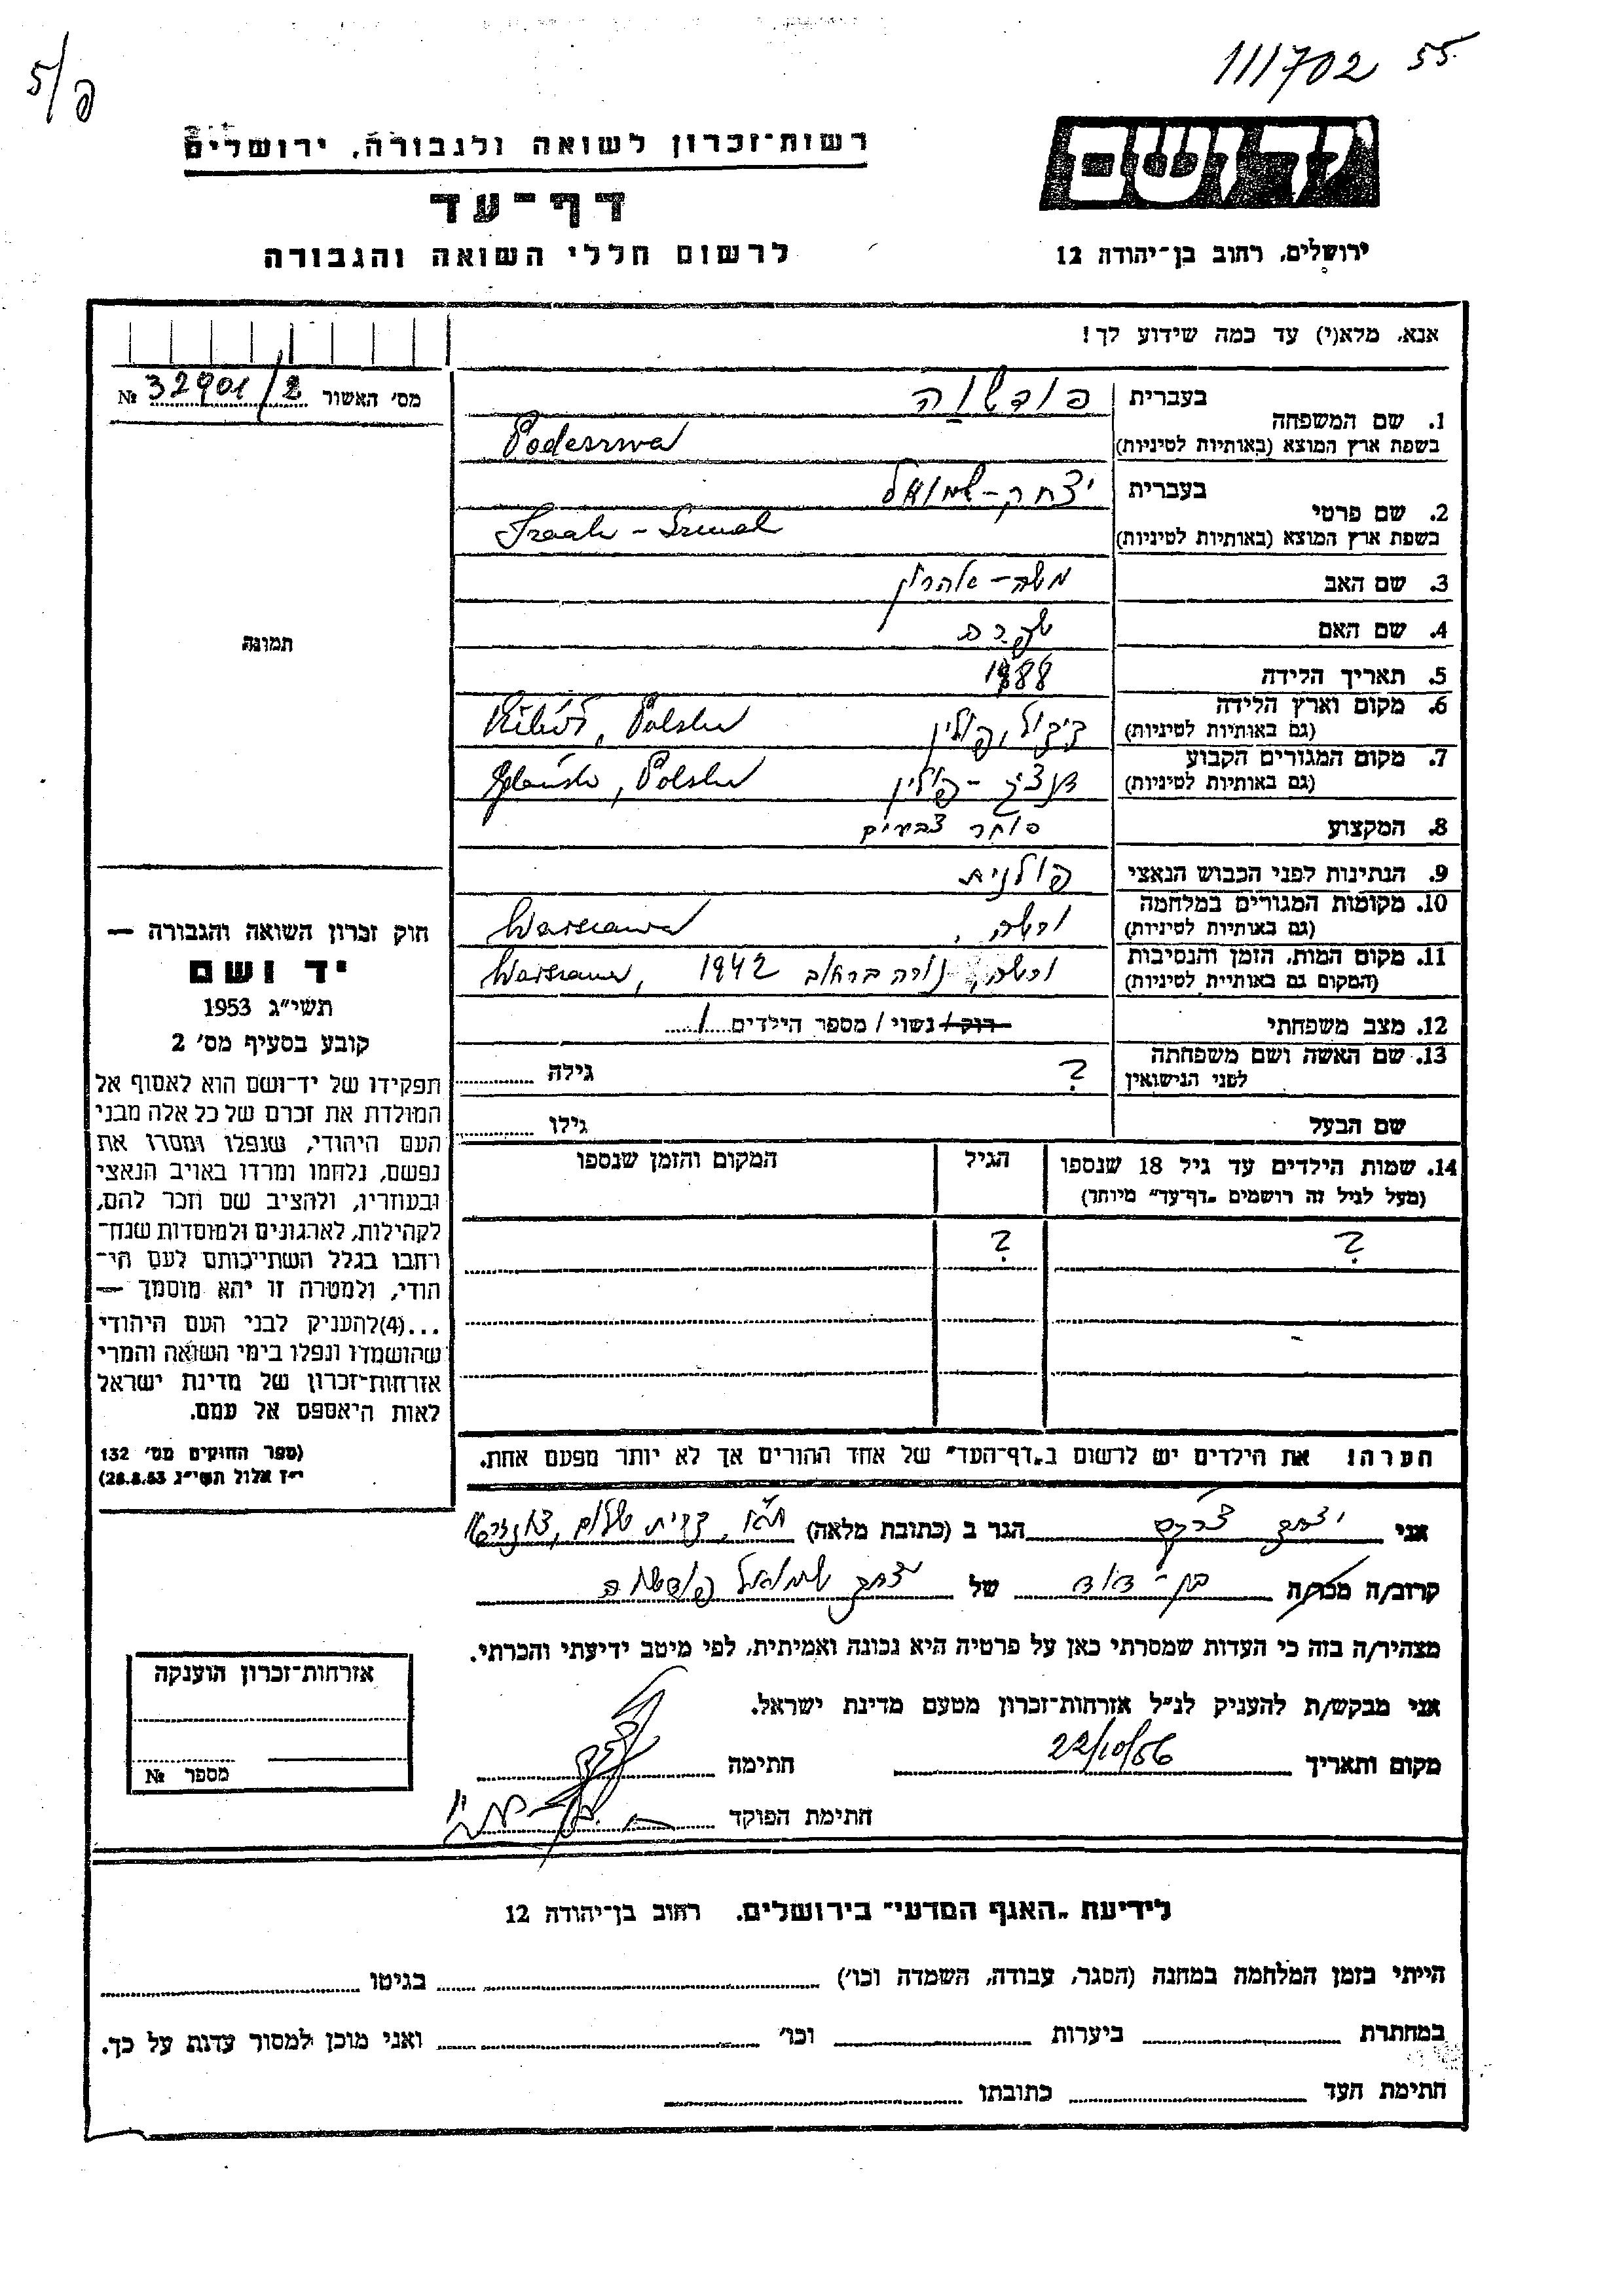 111702 55.
5/פ
יד ושם
רשות־זכרון לשואה ולגבורה, ירושלים
דף־עד
לרשום חללי השואה והגבורה
ירושלים, רחוב בן־יהודה 12
אנא, מלא(י) עד כמה שידוע לך!
מס׳ האשור № 32901/2
תמונה
1. שם המשפחה
בעברית פודשוה
בשפת ארץ המוצא (באותיות לטיניות)
2. שם פרטי
בעברית יצחק-שמואל
בשפת ארץ המוצא (באותיות לטיניות)
3. שם האב משה-אהרון
4. שם האם
5. תאריך הלידה 1888
6. מקום וארץ הלידה
(גם באותיות לטיניות) פולין Polska
7. מקום המגורים הקבוע
(גם באותיות לטיניות) דנציג - פולין Gdańsk, Polska
8. המקצוע סוחר
9. הנתינות לפני הכבוש הנאצי פולנית
10. מקומות המגורים במלחמה
(גם באותיות לטיניות) ורשה, Warszawa
11. מקום המות, הזמן והנסיבות
(המקום גם באותיית לטיניות) ורשה, נורה ברחוב 1942 Warszawa,
12. מצב משפחתי רוק / נשוי / מספר הילדים 1
13. שם האשה ושם משפחתה
לפני הנישואין ? גילה
שם הבעל גילו
14. שמות הילדים עד גיל 18 שנספו הגיל המקום והזמן שנספו
(מעל לגיל זה רושמים „דף־עד” מיוחד)
? ?
הערה! את הילדים יש לרשום ב„דף־העד” של אחד ההורים אך לא יותר מפעם אחת.
חוק זכרון השואה והגבורה —
יד ושם
תשי״ג 1953
קובע בסעיף מס׳ 2
תפקידו של יד־ושם הוא לאסוף אל
המולדת את זכרם של כל אלה מבני
העם היהודי, שנפלו ומסרו את
נפשם, נלחמו ומרדו באויב הנאצי
ובעוזריו, ולהציב שם וזכר להם,
לקהילות, לארגונים ולמוסדות שנח־
רחבו בגלל השתייכותם לעם הי־
הודי, ולמטרה זו יהא מוסמך —
...(4)להעניק לבני העם היהודי
שהושמדו ונפלו בימי השואה והמרי
אזרחות־זכרון של מדינת ישראל
לאות היאספם אל עמם.
(ספר החוקים מס׳ 132
י״ז אלול תשי״ג 28.8.53)
אני יצחק הגר ב (כתובת מלאה) קרית שלום,
קרוב/ה מכר/ה בן-דוד של יצחק שמואל פודשוה
מצהיר/ה בזה כי העדות שמסרתי כאן על פרטיה היא נכונה ואמיתית, לפי מיטב ידיעתי והכרתי.
אני מבקש/ת להעניק לנ״ל אזרחות־זכרון מטעם מדינת ישראל.
מקום ותאריך 22/10/56 חתימה
חתימת הפוקד
אזרחות־זכרון הוענקה
מספר №
לידיעת „האגף המדעי” בירושלים, רחוב בן־יהודה 12
הייתי בזמן המלחמה במחנה (הסגר, עבודה, השמדה וכו׳) בגיטו
במחתרת ביערות וכו׳ ואני מוכן למסור עדות על כך.
חתימת העד כתובתו